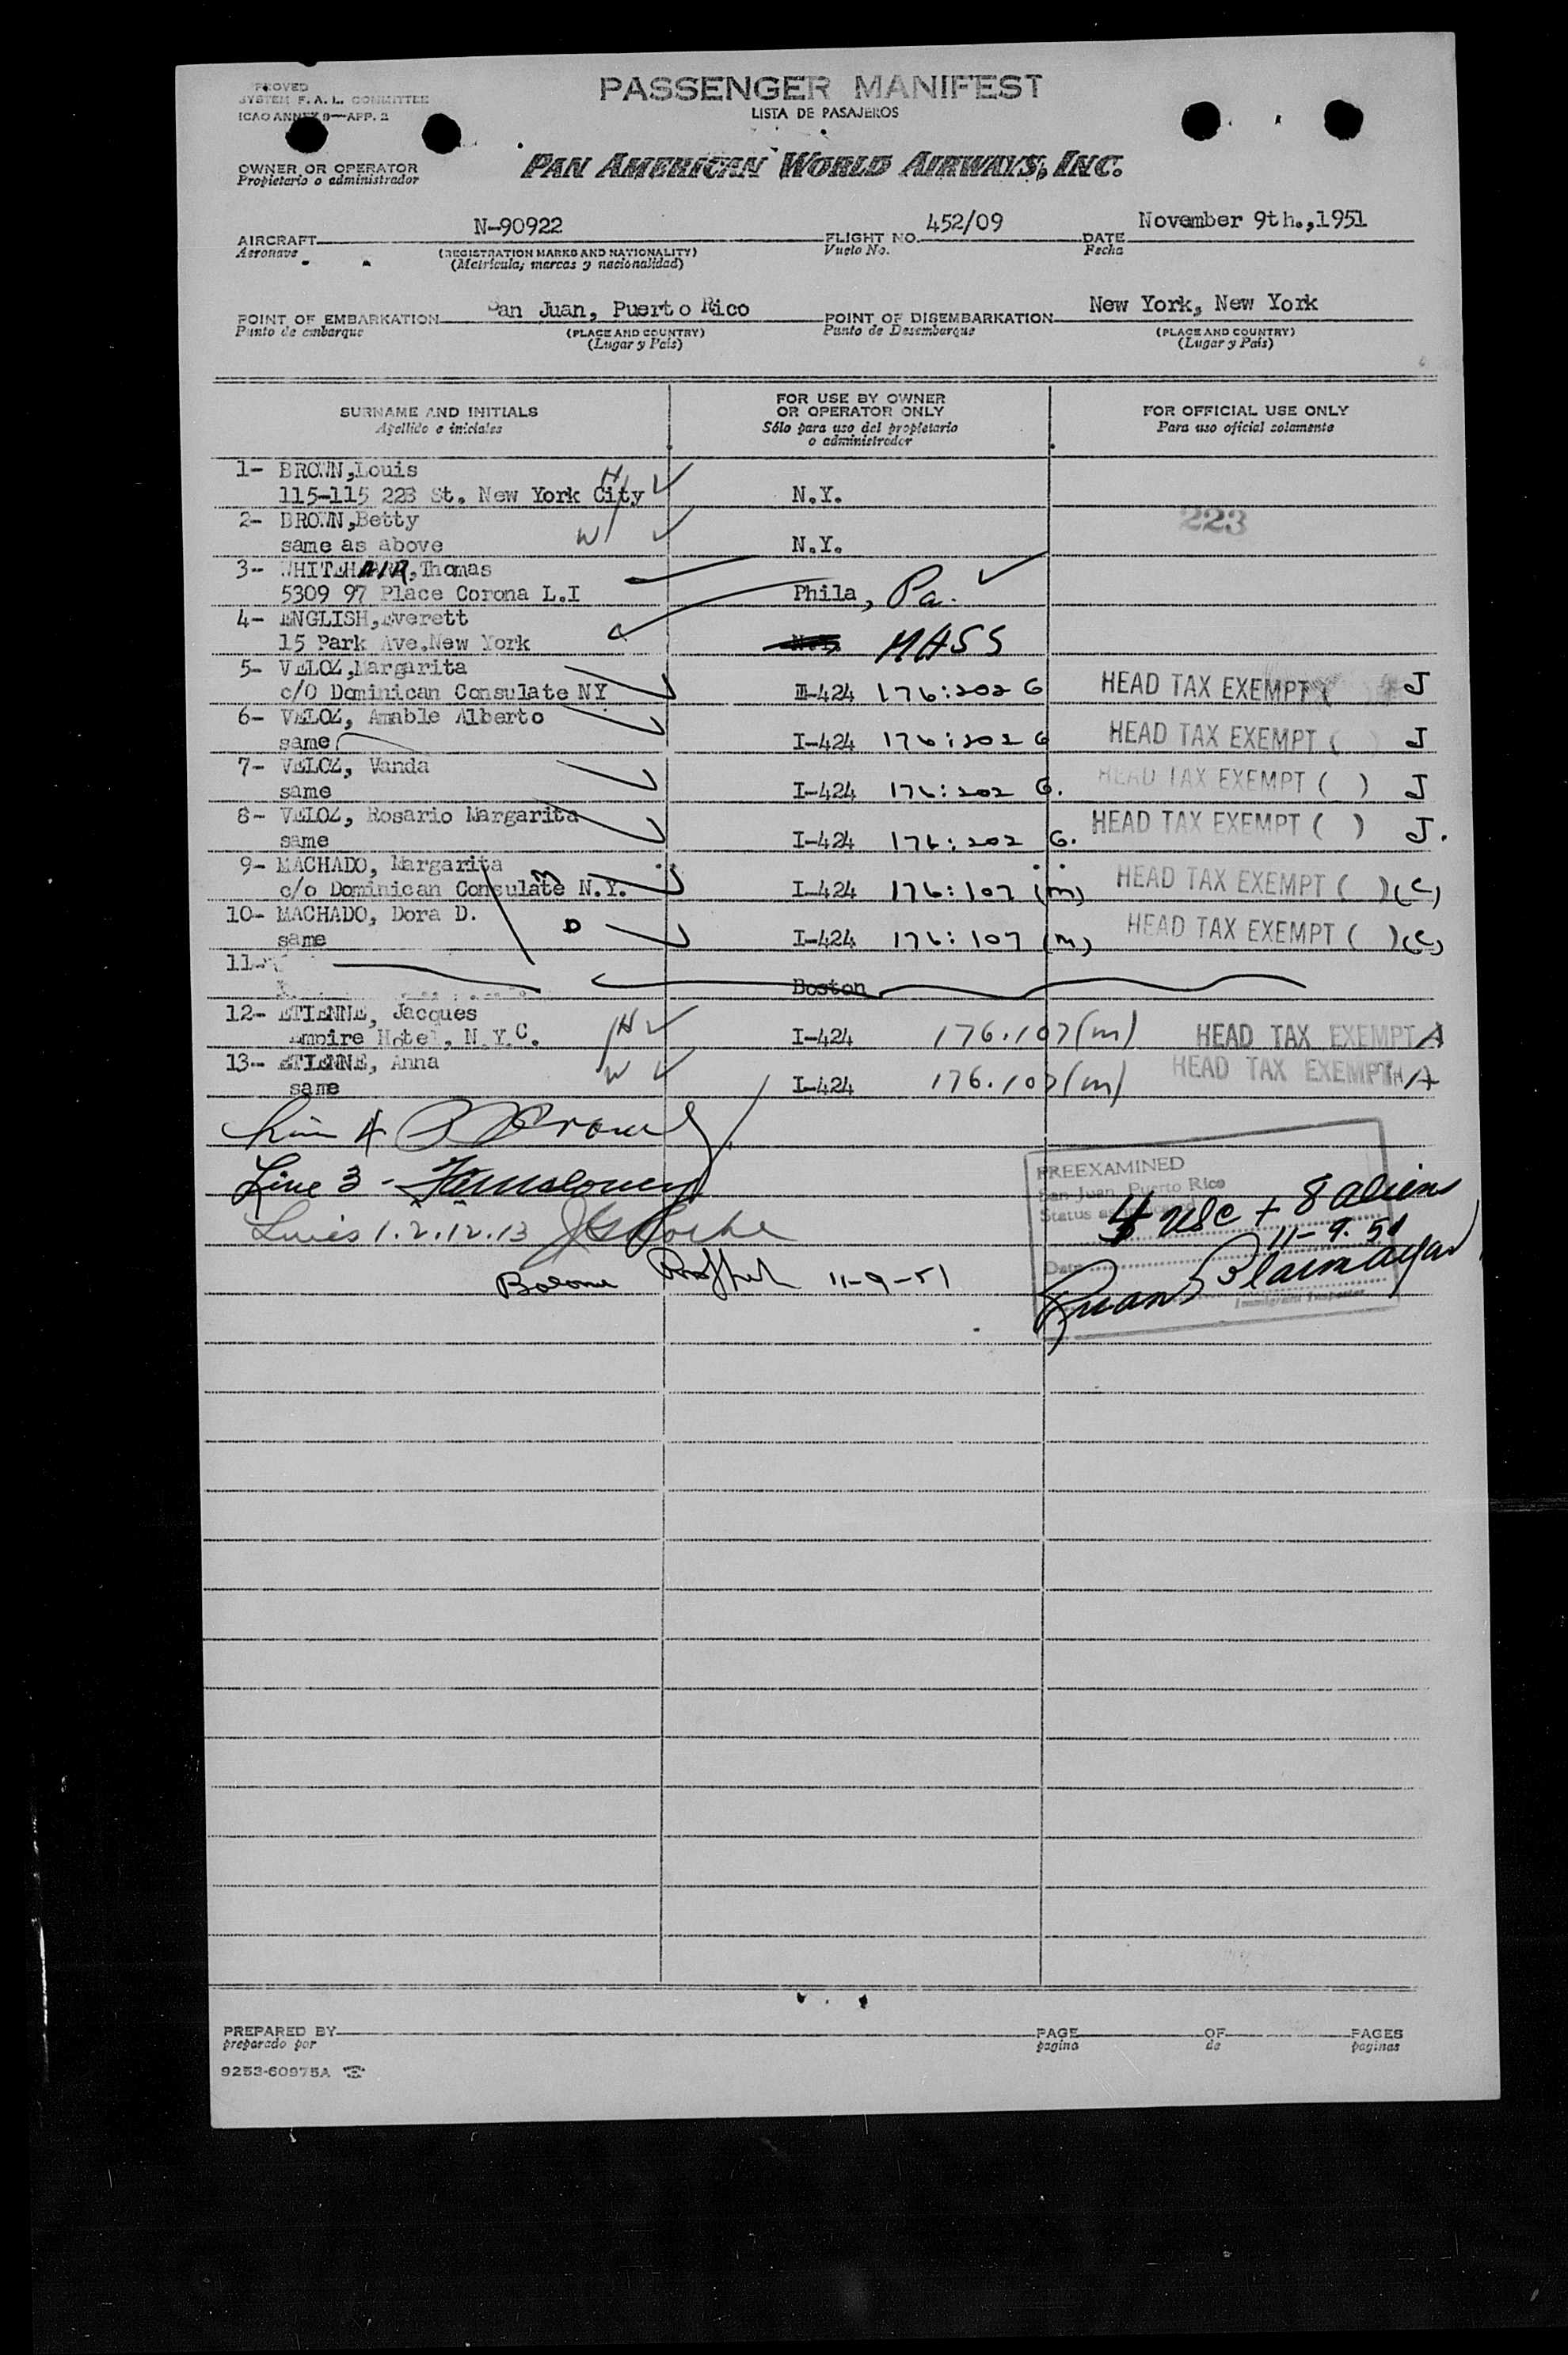 PROVED
SYSTEM F. A. L. COMMITTEE
ICAO ANNEX 9—APP. 2
PASSENGER MANIFEST
LISTA DE PASAJEROS
OWNER OR OPERATOR
Propietario o administrador
PAN AMERICAN WORLD AIRWAYS, INC.
AIRCRAFT N-90922 FLIGHT NO. 452/09 DATE November 9th.,1951
Aeronave (REGISTRATION MARKS AND NATIONALITY) Vuelo No. Fecha
(Matricula, marcas y nacionalidad)
POINT OF EMBARKATION San Juan, Puerto Rico POINT OF DISEMBARKATION New York, New York
Punto de embarque (PLACE AND COUNTRY) Punto de Desembarque (PLACE AND COUNTRY)
(Lugar y Pais) (Lugar y Pais)
SURNAME AND INITIALS FOR USE BY OWNER OR OPERATOR ONLY FOR OFFICIAL USE ONLY
Apellido e iniciales Sólo para uso del propietario o administrador Para uso oficial solamente
1- BROWN,Louis H
115-115 223 St. New York City N.Y.
2- BROWN,Betty 223
same as above W N.Y.
3- WHITEH,Thomas
5309 97 Place Corona L.I Phila, Pa.
4- ENGLISH,Everett
15 Park Ave.New York MASS
5- VELOZ,Margarita
c/O Dominican Consulate NY I-424 176:202 G HEAD TAX EXEMPT ( J
6- VELOZ, Amable Alberto
same I-424 176:202 G HEAD TAX EXEMPT ( ) J
7- VELOZ, Vanda
same I-424 176:202 G. HEAD TAX EXEMPT ( ) J
8- VELOZ, Rosario Margarita
same I-424 176:202 G. HEAD TAX EXEMPT ( ) J.
9- MACHADO, Margarita M
c/o Dominican Consulate N.Y. I-424 176:107 (m) HEAD TAX EXEMPT ( ) (C)
10- MACHADO, Dora D. D
same I-424 176:107 (m) HEAD TAX EXEMPT ( ) (C)
11-
Boston
12- ETIENNE, Jacques
Empire Hotel, N.Y.C. H I-424 176.107(m) HEAD TAX EXEMPT A
13- ETIENNE, Anna
same W I-424 176.107(m) HEAD TAX EXEMPT A
Line 4
Line 3 -
Lines 1.2.12.13
11-9-51
PREEXAMINED
San Juan, Puerto Rico
Status as
4 USC + 8 aliens
11-9-51
Date
Juan
Immigrant Inspector
PREPARED BY PAGE OF PAGES
preparado por pagina de paginas
9253-60975A